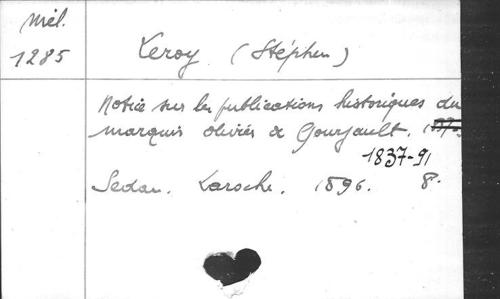 Mél.
1285
Leroy (Stéphen)
Notice sur les publications historiques du
marquis Olivier de Gourjault.
1837-91
Sedan. Laroche. 1896. 8.